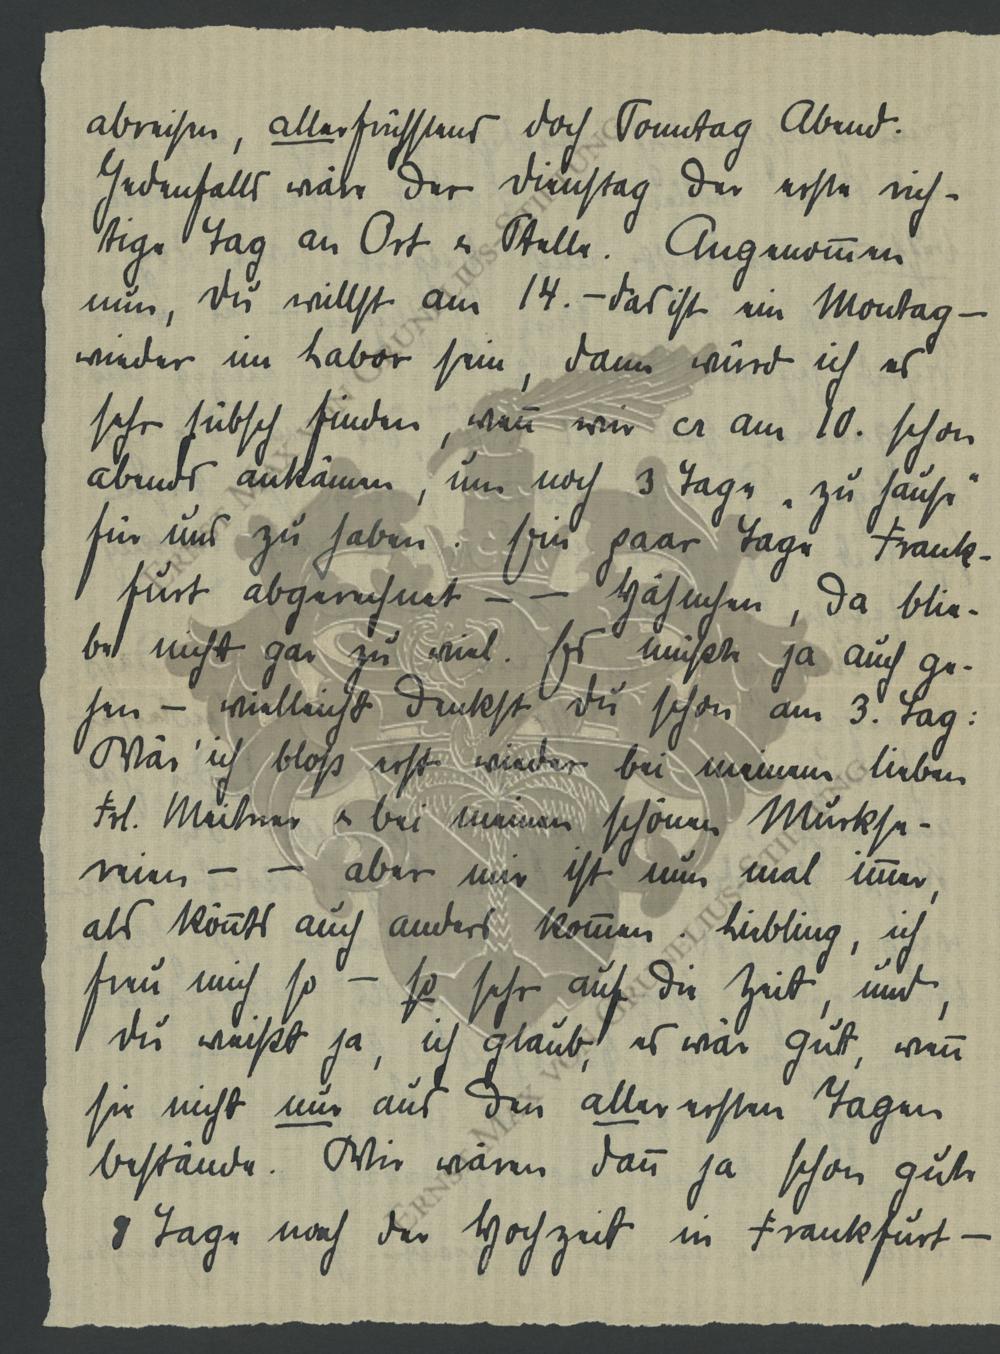 abreisen, allerfrühstens doch Sonntag Abend.
Jedenfalls wäre der Dienstag der erste rich-
tige Tag an Ort u Stelle. Angenom̅en
nun, Du willst am 14. – das ist ein Montag –
wieder im Labor sein, dann würd ich es
sehr hübsch finden, wen̅ wir ca am 10. schon
abends ankämen, um noch 3 Tage „zu Hause"
für uns zu haben. Ein paar Tage Frank-
furt abgerechnet – – Hähnchen, da blie-
be nicht gar zu viel. Es müsste ja auch ge-
hen – vielleicht denkst Du schon am 3. Tag:
Wär' ich bloss erst wieder bei meinem lieben
Frl. Meitner u bei meinen schönen Murkse-
reien – – aber mir ist nun mal im̅er,
als kön̅ts auch anders kom̅en. Liebling, ich
freu mich so – so sehr auf die Zeit, und,
Du weisst ja, ich glaub, es wär gut, wen̅
sie nicht nur aus den allerersten Tagen
bestände. Wir wären dan̅ ja schon gute
8 Tage nach der Hochzeit in Frankfurt –
ERNST MAX VON GRUNELIUS-STIFTUNG
ERNST MAX VON GRUNELIUS-STIFTUNG